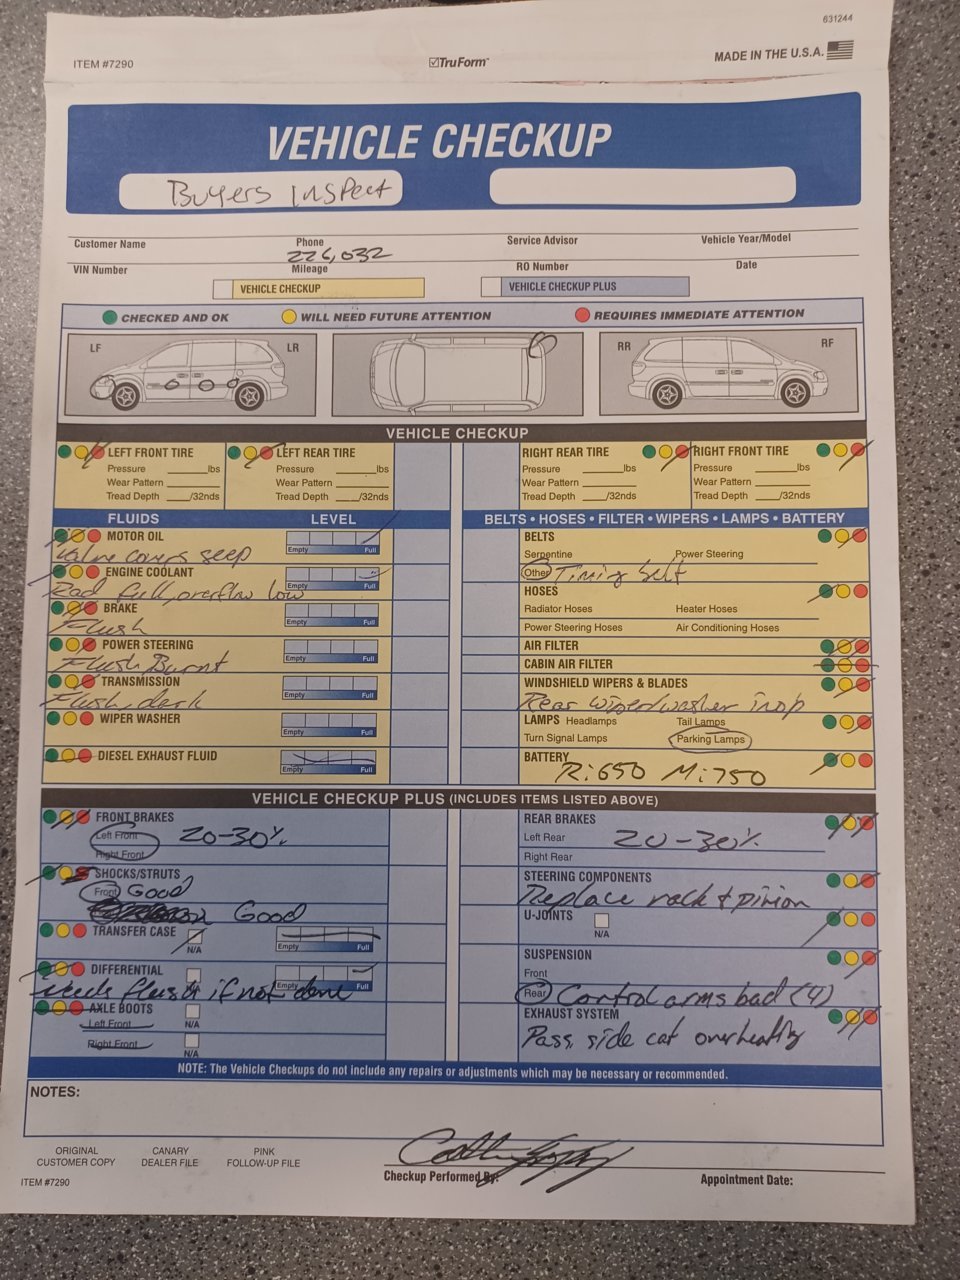 631244
ITEM #7290
TruForm™
MADE IN THE U.S.A.
VEHICLE CHECKUP
Buyers Inspect
Customer Name Phone Service Advisor Vehicle Year/Model
226,032
VIN Number Mileage RO Number Date
VEHICLE CHECKUP VEHICLE CHECKUP PLUS
CHECKED AND OK WILL NEED FUTURE ATTENTION REQUIRES IMMEDIATE ATTENTION
LF LR RR RF
VEHICLE CHECKUP
LEFT FRONT TIRE
Pressure ______lbs
Wear Pattern ______
Tread Depth ___/32nds
LEFT REAR TIRE
Pressure ______lbs
Wear Pattern ______
Tread Depth ___/32nds
RIGHT REAR TIRE
Pressure ______lbs
Wear Pattern ______
Tread Depth ___/32nds
RIGHT FRONT TIRE
Pressure ______lbs
Wear Pattern ______
Tread Depth ___/32nds
FLUIDS LEVEL
MOTOR OIL
Empty Full
Valve covers seep
ENGINE COOLANT
Empty Full
Rad full, overflow low
BRAKE
Empty Full
Flush
POWER STEERING
Empty Full
Flush Burnt
TRANSMISSION
Empty Full
Flush, dark
WIPER WASHER
Empty Full
DIESEL EXHAUST FLUID
Empty Full
BELTS • HOSES • FILTER • WIPERS • LAMPS • BATTERY
BELTS
Serpentine Power Steering
Other Timing belt
HOSES
Radiator Hoses Heater Hoses
Power Steering Hoses Air Conditioning Hoses
AIR FILTER
CABIN AIR FILTER
WINDSHIELD WIPERS & BLADES
Rear wiper/washer inop
LAMPS Headlamps Tail Lamps
Turn Signal Lamps Parking Lamps
BATTERY
R:650 M:750
VEHICLE CHECKUP PLUS (INCLUDES ITEMS LISTED ABOVE)
FRONT BRAKES
Left Front 20-30%
Right Front
SHOCKS/STRUTS
Front Good
Good
TRANSFER CASE
N/A
Empty Full
DIFFERENTIAL
Empty Full
needs flush if not done
AXLE BOOTS
Left Front N/A
Right Front
N/A
REAR BRAKES
Left Rear 20-30%
Right Rear
STEERING COMPONENTS
Replace rack & pinion
U-JOINTS
N/A
SUSPENSION
Front
Rear Control arms bad (4)
EXHAUST SYSTEM
Pass. side cat overheating
NOTE: The Vehicle Checkups do not include any repairs or adjustments which may be necessary or recommended.
NOTES:
ORIGINAL CANARY PINK
CUSTOMER COPY DEALER FILE FOLLOW-UP FILE
Checkup Performed By: Appointment Date:
ITEM #7290